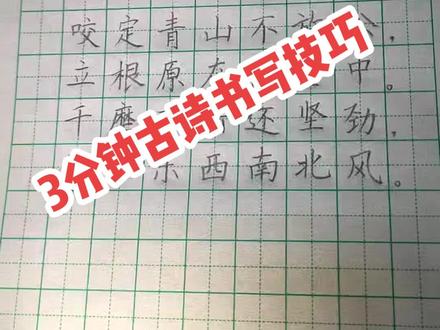 咬定青山不放,
立根原在中。
千磨还坚劲,
东西南北风。
3分钟古诗书写技巧